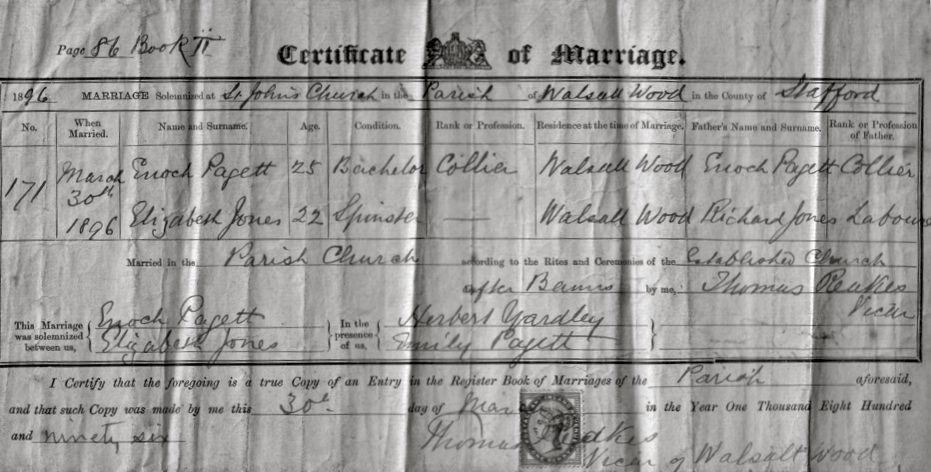 Page 86 Book II
Certificate of Marriage.
1896 MARRIAGE Solemnized at St John's Church in the Parish of Walsall Wood in the County of Stafford
No. When Married. Name and Surname. Age. Condition. Rank or Profession. Residence at the time of Marriage. Father's Name and Surname. Rank or Profession of Father.
171 March 30th 1896 Enoch Pagett 25 Bachelor Collier Walsall Wood Enoch Pagett Collier
Elizabeth Jones 22 Spinster — Walsall Wood Richard Jones Labourer
Married in the Parish Church according to the Rites and Ceremonies of the Established Church
after Banns by me, Thomas Reakes
Vicar
This Marriage was solemnized between us, Enoch Pagett In the presence of us, Herbert Yardley
Elizabeth Jones Emily Pagett
I Certify that the foregoing is a true Copy of an Entry in the Register Book of Marriages of the Parish aforesaid,
and that such Copy was made by me this 30th day of Mar in the Year One Thousand Eight Hundred
and ninety six Thomas
Vicar of Walsall Wood